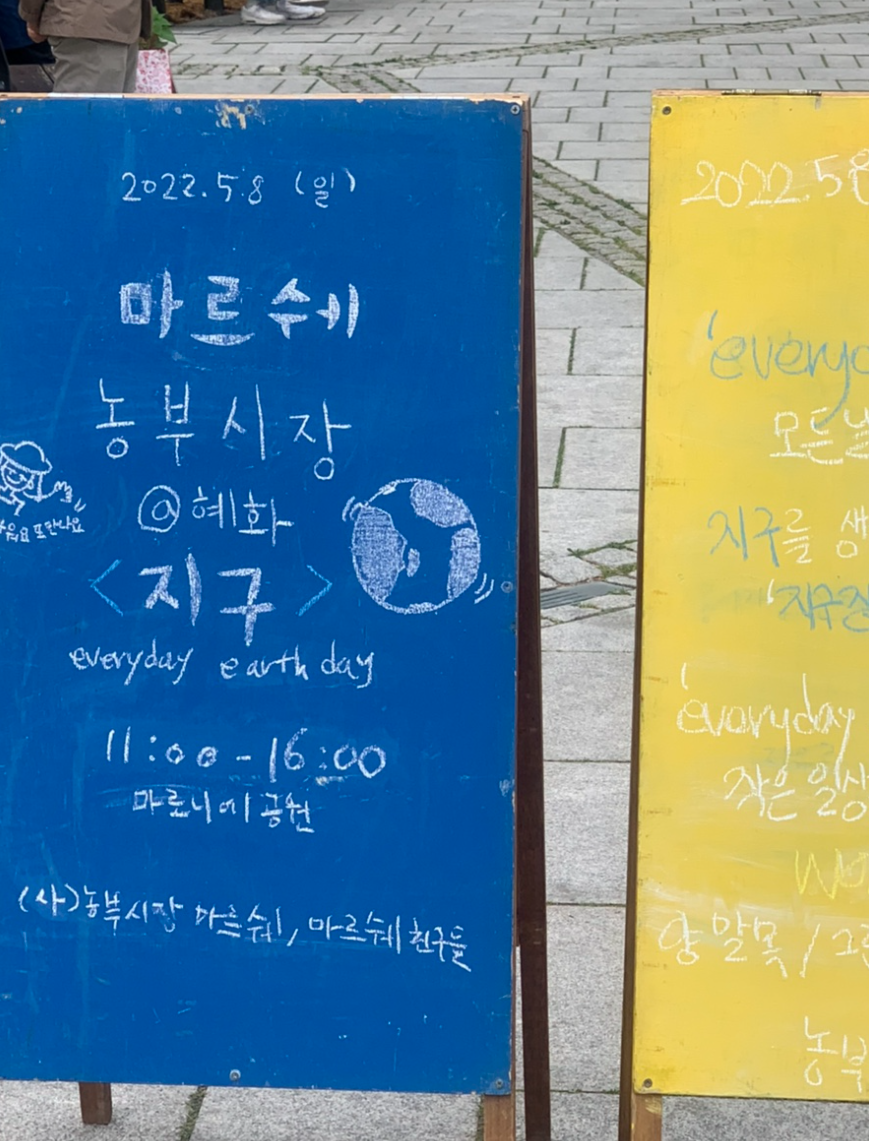 2022.5.8 (일)
마르쉐
농부시장
@혜화
<지구>
everyday earth day
11:00-16:00
마로니에공원
(사)농부시장 마르쉐, 마르쉐친구들
또만나요
2022.5.8
'everyd
모든날
지구를 생
'everyday
작은 일상
양말목 / 그린
농부